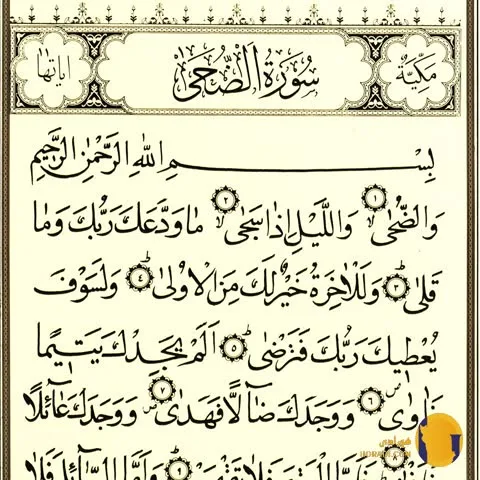 مَكِّيَّةٌ سُورَةُ الضُّحَىٰ اياتها
بِسْمِ اللهِ الرَّحْمٰنِ الرَّحِيمِ
وَالضُّحٰىۙ ﴿١﴾ وَاللَّيْلِ اِذَا سَجٰىۙ ﴿٢﴾ مَا وَدَّعَكَ رَبُّكَ وَمَا
قَلٰىۜ ﴿٣﴾ وَلَلْاٰخِرَةُ خَيْرٌ لَكَ مِنَ الْاُو۫لٰىۜ ﴿٤﴾ وَلَسَوْفَ
يُعْط۪يكَ رَبُّكَ فَتَرْضٰىۜ ﴿٥﴾ اَلَمْ يَجِدْكَ يَت۪يمًا
فَاٰوٰىۖ ﴿٦﴾ وَوَجَدَكَ ضَٓالًّا فَهَدٰىۖ ﴿٧﴾ وَوَجَدَكَ عَٓائِلًا